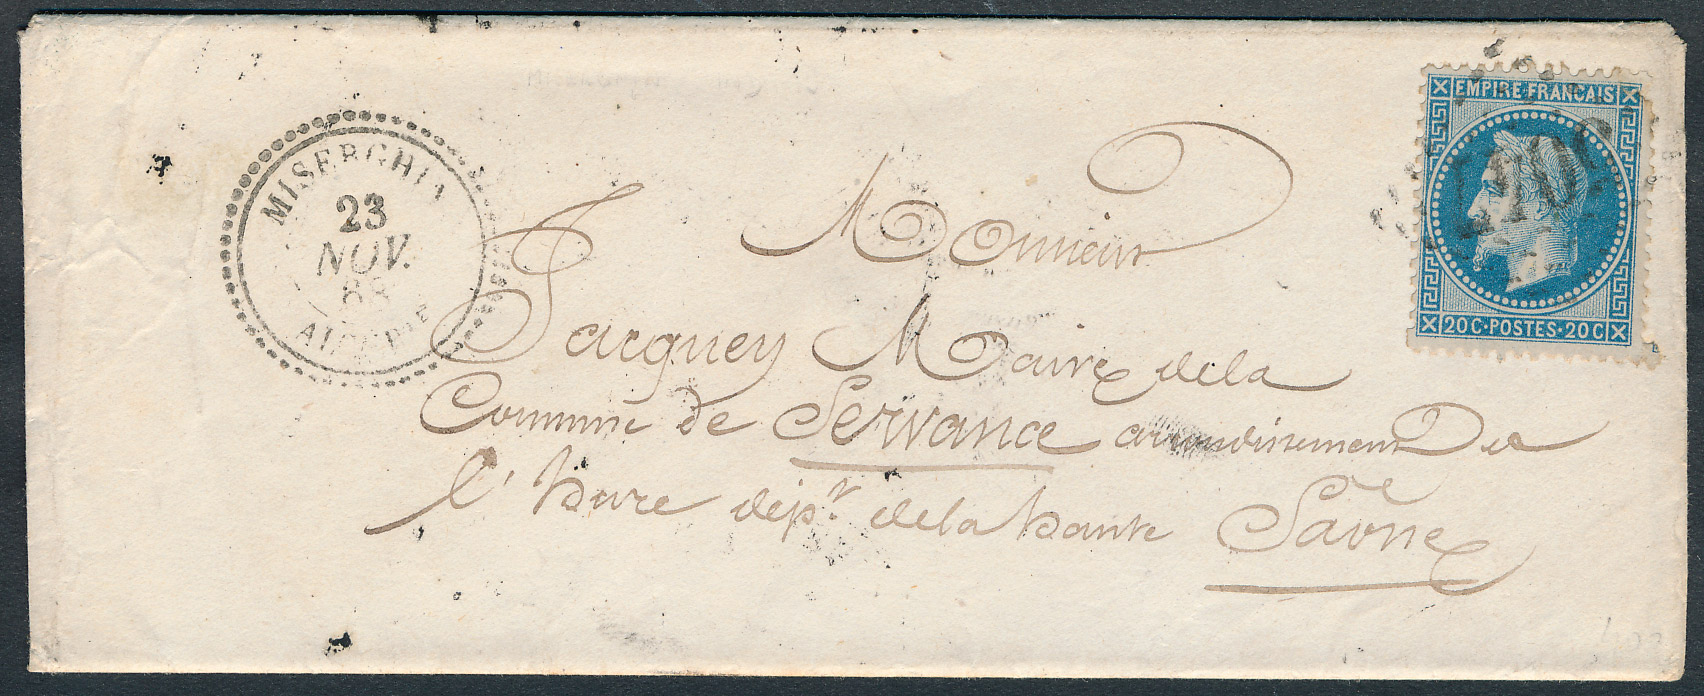 MISERGHIN
23
NOV.
68
ALGERIE
EMPIRE FRANÇAIS
20C·POSTES·20C
Monsieur
Jacquey Maire de la
Commune de Servance arrondissement De
l'hure dépt. de la haute Saône